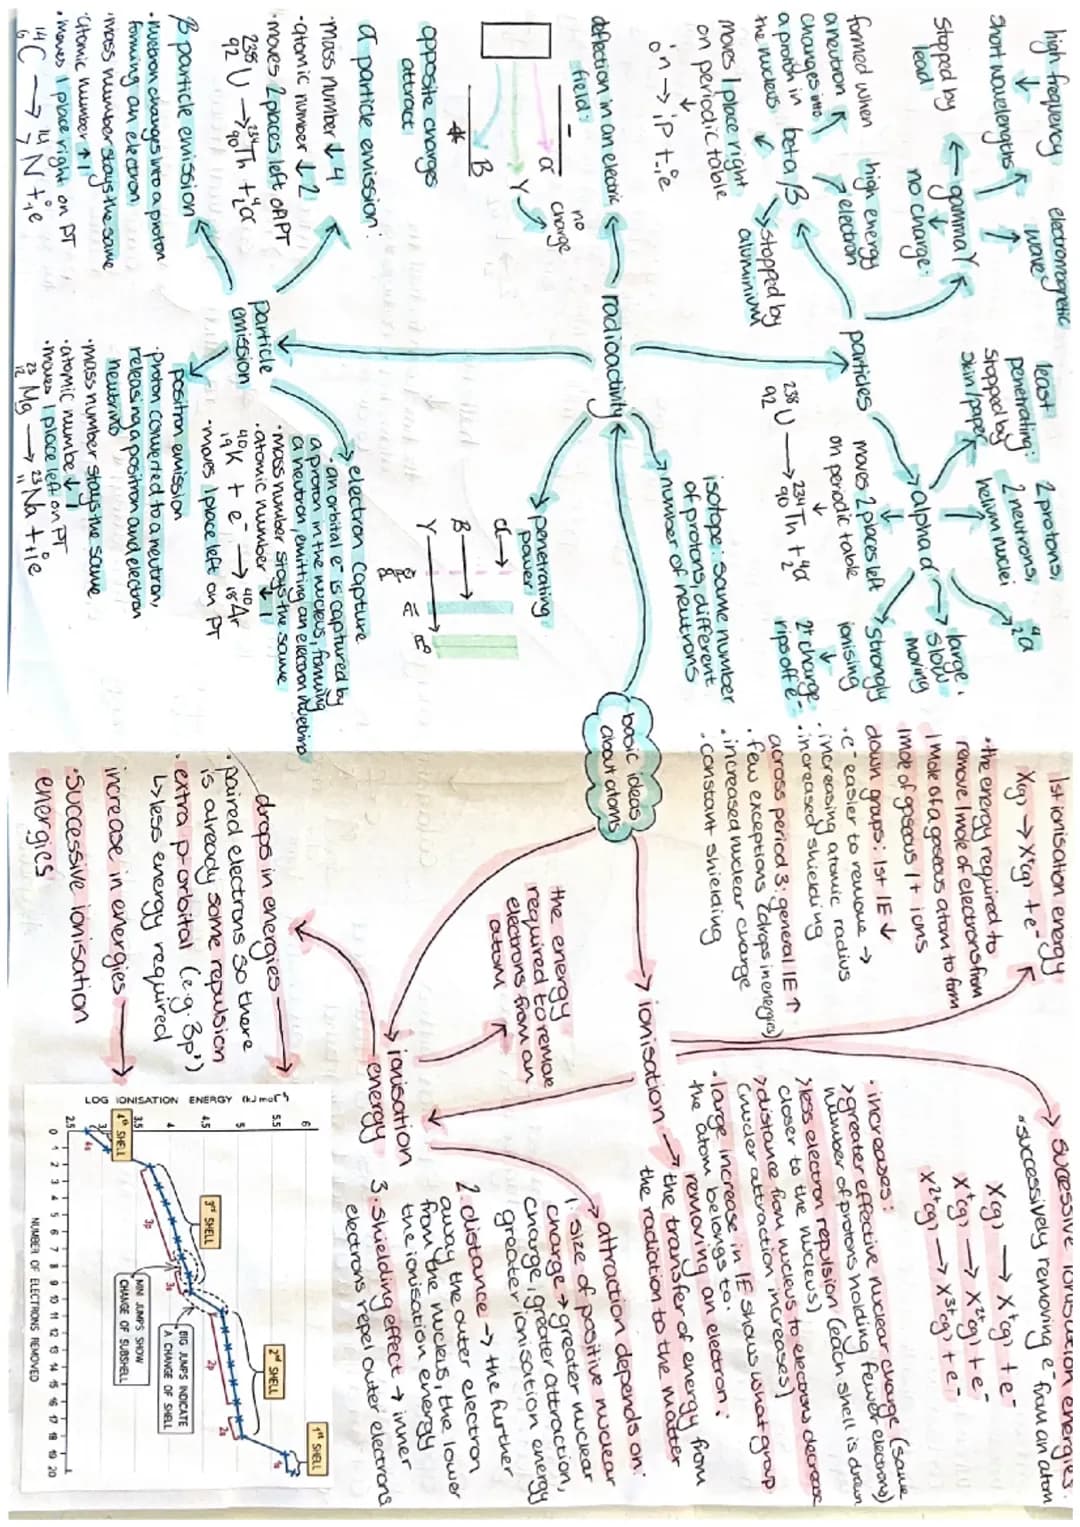 high frequency
short wavelengths
electromagnetic
wave
gamma γ
no charge.
stopped by
lead
formed when
a neutron
changes into
a proton in
the nucleus
high energy
electron
beta/β
stopped by
aluminium
moves 1 place right
on periodic table
particles
least
penetrating:
stopped by
skin/paper
2 protons,
2 neutrons,
helium nuclei
⁴₂α
alpha α
large,
slow
moving
strongly
ionising
2⁺ charge
rips off e⁻
moves 2 places left
on periodic table
²³⁸₉₂U → ²³⁴₉₀Th + ⁴₂α
isotope: same number
of protons, different
number of neutrons
number of neutrons
radioactivity
deflection in an electric
field:
-
α
γ
β
+
no
charge
opposite charges
attract
penetrating
power
α
β
γ
paper
Al
Pb
particle
emission
α particle emission:
·mass number ↓4
·atomic number ↓2
·moves 2 places left of PT
²³⁸₉₂U → ²³⁴₉₀Th + ⁴₂α
β particle emission
·neutron changes into a proton
forming an electron
·mass number stays the same
·atomic number ↑1
·moves 1 place right on PT
¹⁴₆C → ¹⁴₇N + ⁰₋₁e
electron capture
·an orbital e⁻ is captured by
a proton in the nucleus, forming
a neutron, emitting an electron neutrino
·mass number stays the same
·atomic number ↓1
⁴⁰₁₉K + e⁻ → ⁴⁰₁₈Ar
·moves 1 place left on PT
positron emission
·proton converted to a neutron,
releasing a positron and electron
neutrino
·mass number stays the same
·atomic numbe ↓1
·moves 1 place left on PT
²³₁₂Mg → ²³₁₁Na + ⁰₊₁e
basic ideas
about atoms
1st ionisation energy
X(g) → X⁺(g) + e⁻
·the energy required to
remove 1 mole of electrons from
1 mole of a gaseous atom to form
1 mole of gaseous 1+ ions
down groups: 1st IE ↓
·e⁻ easier to remove →
·increasing atomic radius
·increased shielding
across period 3: general IE ↑
·few exceptions (drops in energies)
·increased nuclear charge
·constant shielding
successive ionisation energies
·successively removing e⁻ from an atom
X(g) → X⁺(g) + e⁻
X⁺(g) → X²⁺(g) + e⁻
X²⁺(g) → X³⁺(g) + e⁻
·increases:
>greater effective nuclear charge (same
number of protons holding fewer electrons)
>less electron repulsion (each shell is drawn
closer to the nucleus)
>distance from nucleus to electrons decrease
(nuclear attraction increases)
·large increase in IE shows what group
the atom belongs to.
ionisation
the transfer of energy from
removing an electron:
the radiation to the matter
the energy
required to remove
electrons from an
atom
ionisation
energy
attraction depends on:
1. size of positive nuclear
charge → greater nuclear
charge, greater attraction,
greater ionisation energy
2. distance → the further
away the outer electron
from the nucleus, the lower
the ionisation energy
3. shielding effect → inner
electrons repel outer electrons
drops in energies
·paired electrons so there
is already some repulsion
·extra p-orbital (e.g. 3p¹)
↳less energy required
increase in energies
·successive ionisation
energies
LOG IONISATION ENERGY (kJ mol⁻¹)
6
5.5
5
4.5
4
3.5
3
2.5
0 1 2 3 4 5 6 7 8 9 10 11 12 13 14 15 16 17 18 19 20
NUMBER OF ELECTRONS REMOVED
4th SHELL
3rd SHELL
2nd SHELL
1st SHELL
4s
3p
3s
2p
2s
1s
MINI JUMPS SHOW
CHANGE OF SUBSHELL
BIG JUMPS INDICATE
A CHANGE OF SHELL